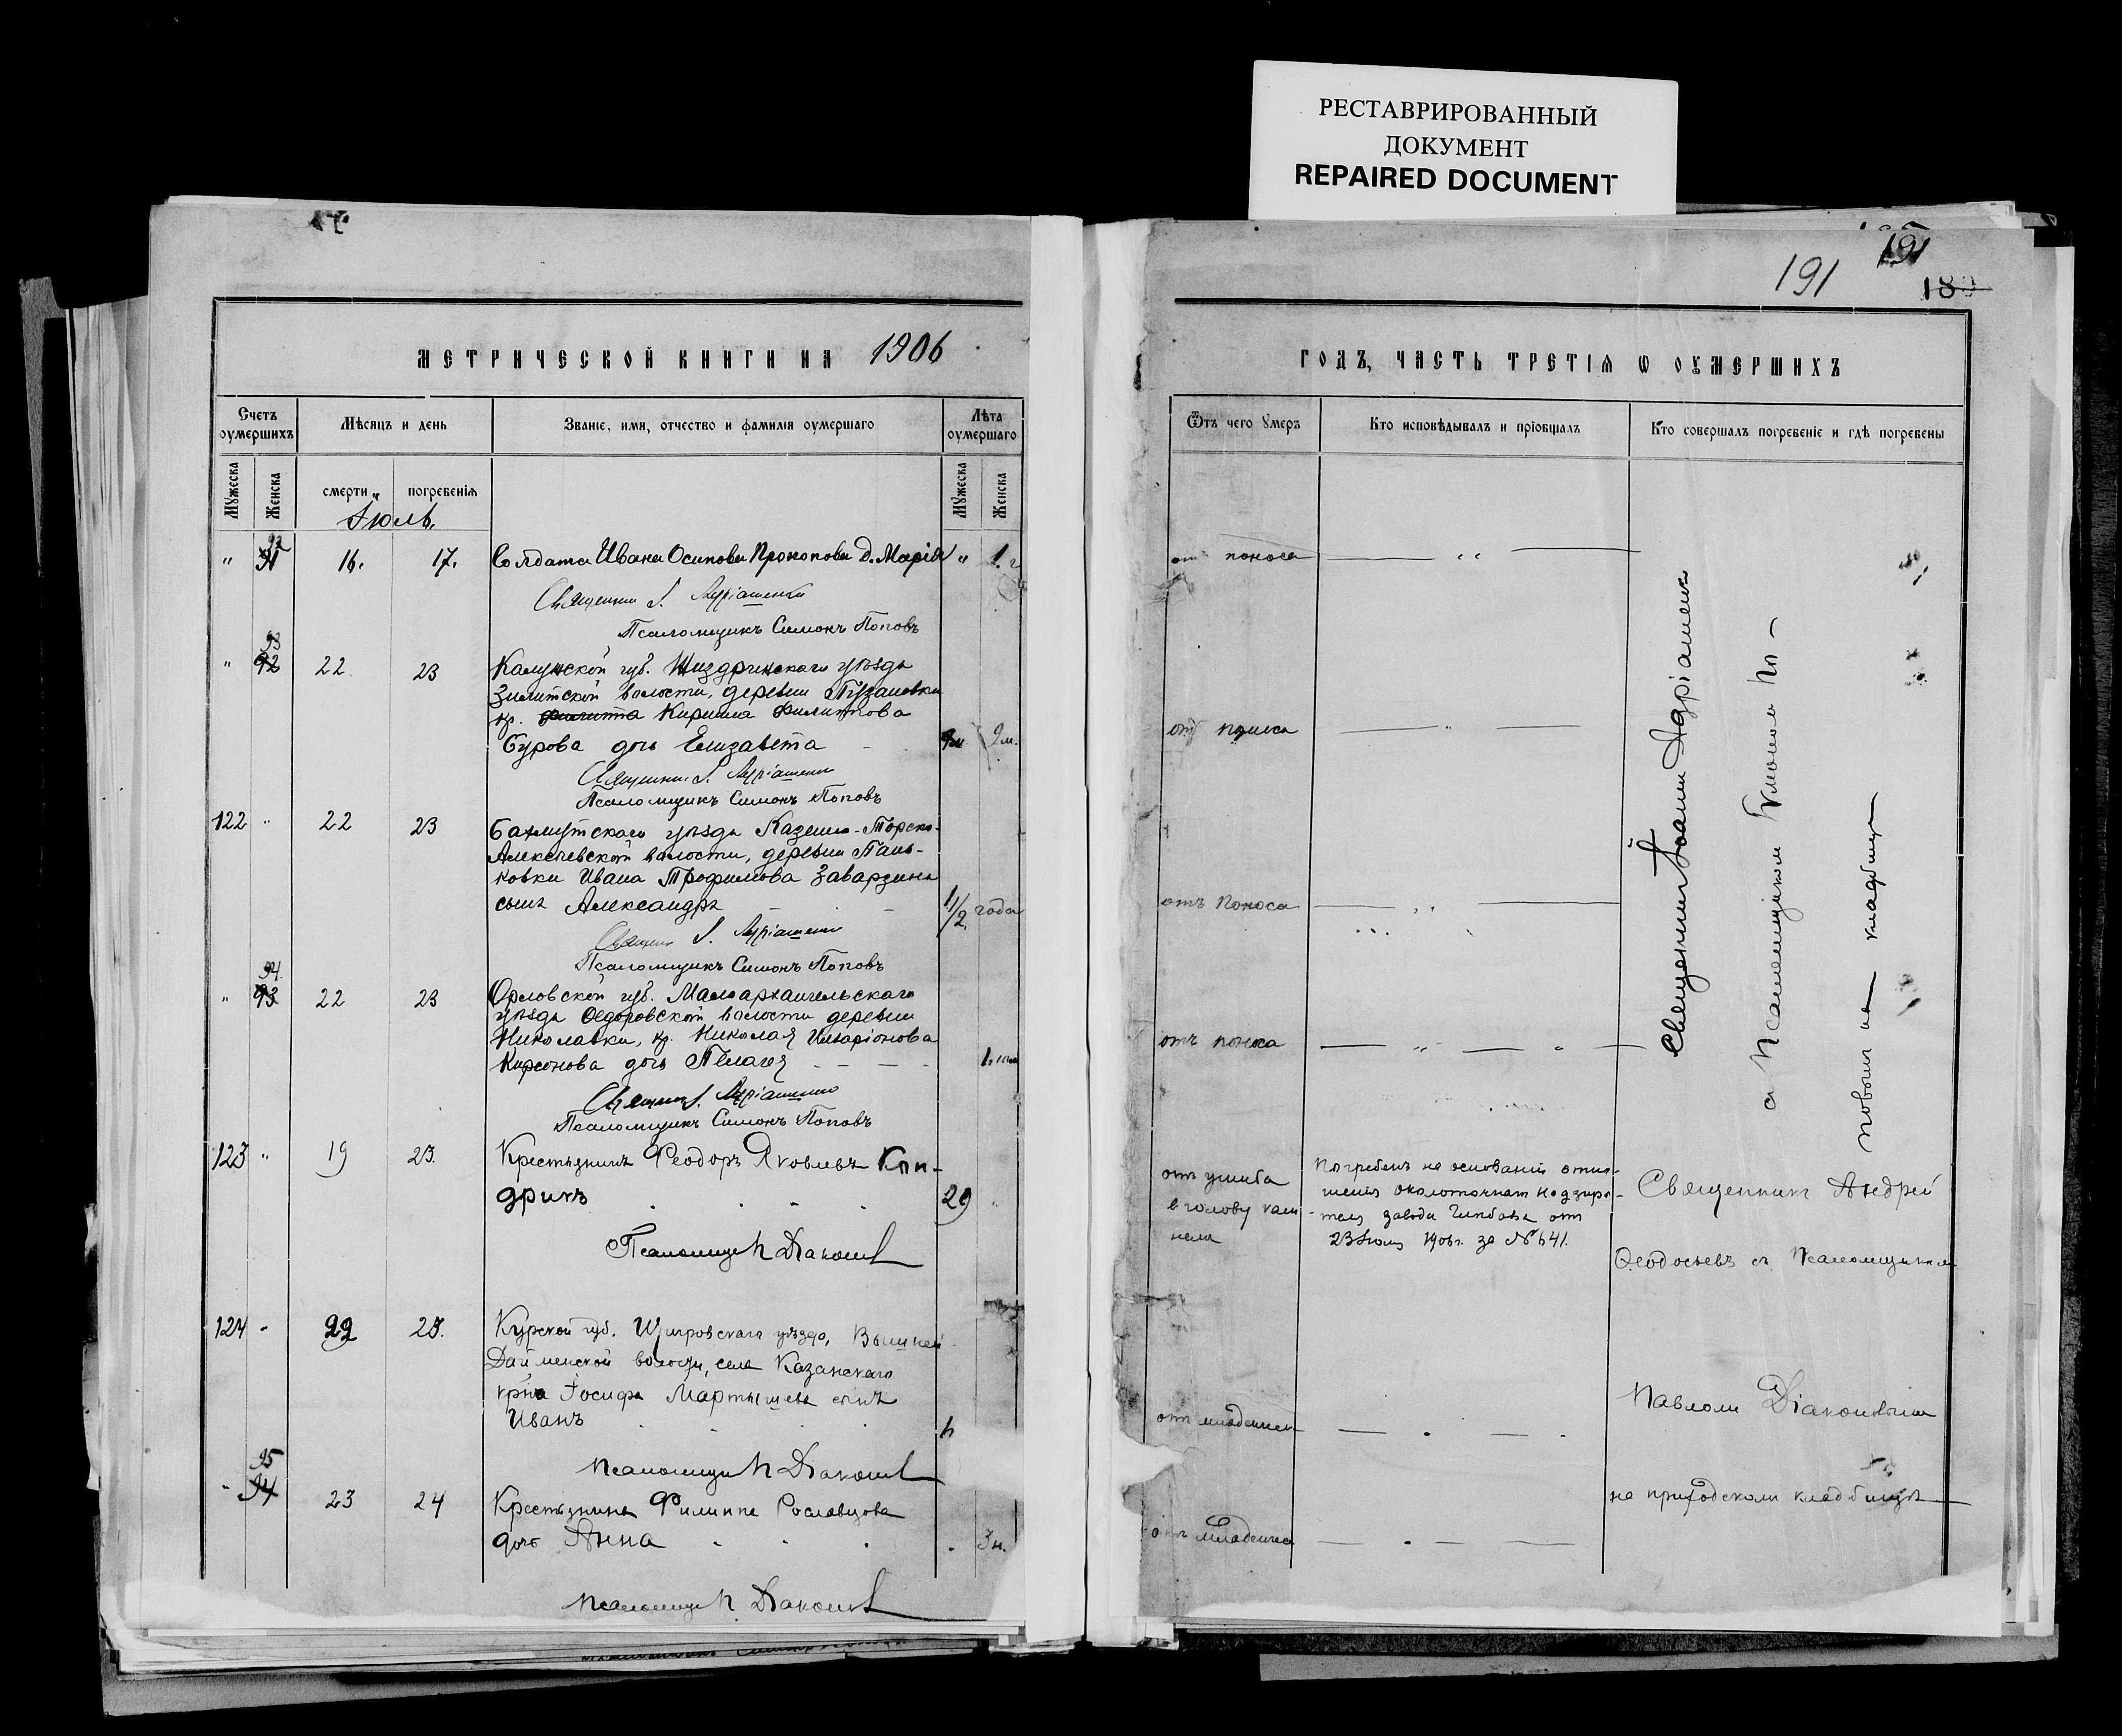 РЕСТАВРИРОВАННЫЙ
ДОКУМЕНТ
REPAIRED DOCUMENT
191
191
МЕТРИЧЕСКОЙ КНИГИ НА 1906
Счетъ оумершихъ
Мѣсяцъ и день
Званіе, имя, отчество и фамилія оумершаго
Лѣта оумершаго
Мужеска
Женска
смерти
погребенія
Мужеска
Женска
Іюль.
" 92 91 16. 17. Солдата Ивана Осипова Прокопова д. Марія " 1 г
Священникъ І. Адріашенко
Псаломщикъ Симонъ Поповъ
" 93 92 22 23 Калужской губ. Жиздринскаго уѣзда
волости, деревни
кр. Кирилла Филиппова
Бурова дочь Елизавета 9м.
Священникъ І. Адріашенко
Псаломщикъ Симонъ Поповъ
122 " 22 23 Бахмутскаго уѣзда Казенно-Торско-
Алексѣевской волости, деревни Пань-
ковки Ивана Трофимова Заварзина
сынъ Александръ 1 1/2 года
Священ І. Адріашенко
Псаломщикъ Симонъ Поповъ
" 94. 93 22 23 Орловской губ. Малоархангельскаго
уѣзда Ѳедоровской волости деревни
Николавки, кр. Николая Иларіонова
дочь Пелагея
Священ І. Адріашенко
Псаломщикъ Симонъ Поповъ
123 " 19 23. Крестьянинъ Феодоръ Яковлевъ Кон-
дрикъ 29
Псаломщ П Діаконов
124 - 22 23. Курской губ. Щигровскаго уѣзда, Вышней
Дайменской волости, села Казанскаго
кр-на Іосифа Мартышева сынъ
Иванъ
Псаломщ П Діаконов
" 95 94 23 24 Крестьянина Филиппа Рославцова
дочь Анна 3 н.
Псаломщ П. Діаконов
ГОДЪ, ЧАСТЬ ТРЕТІЯ Ѡ ОУМЕРШИХЪ
Ѿтъ чего умеръ
Кто исповѣдывалъ и пріобщалъ
Кто совершалъ погребеніе и гдѣ погребены
отъ поноса
отъ поноса
отъ поноса
отъ поноса
Священникъ Іоаннъ Адріашенко
съ Псаломщикомъ Симономъ По-
повымъ на кладбищѣ
отъ ушиба
в голову кам
немъ
Погребенъ на основаніи отно-
шенія околоточнаго надзира-
теля завода отъ
23 Іюля 1906 г. за № 641.
Священникъ Андрей
Ѳеодосьевъ съ Псаломщикомъ
отъ младенческ
Павломъ Діаконовымъ
отъ младенческ
на приходскомъ кладбищѣ